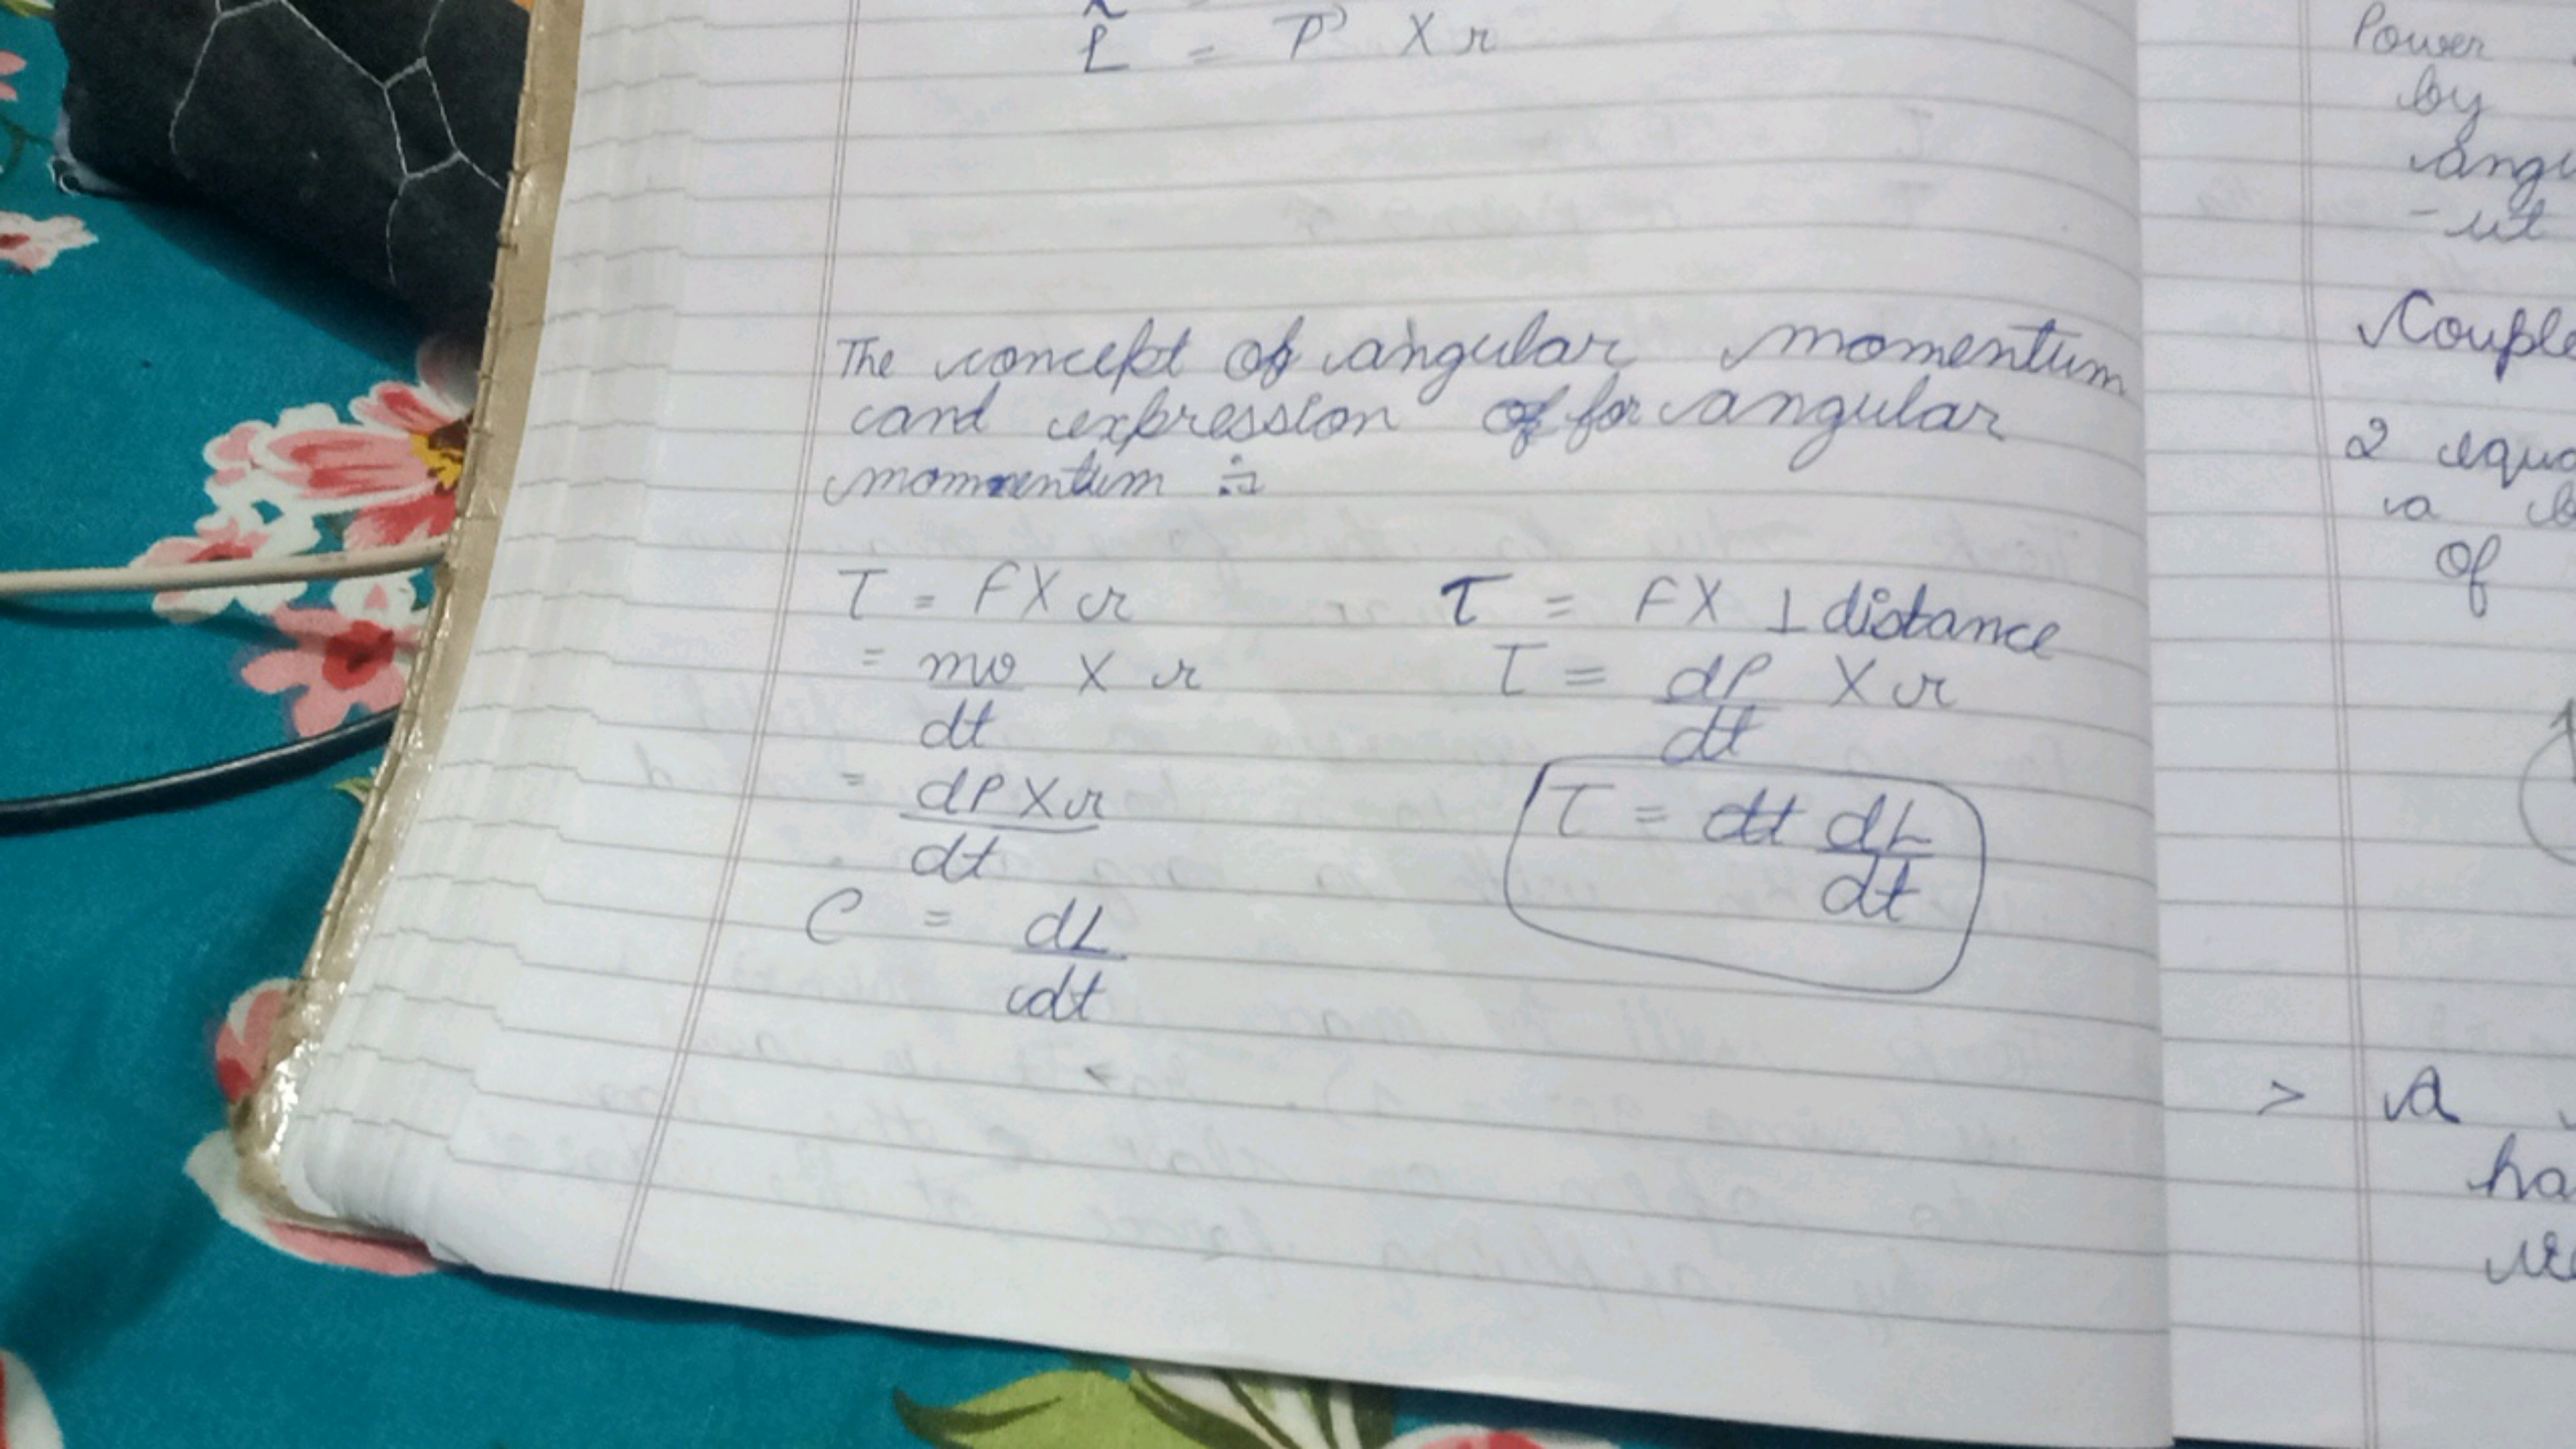 L = P X r
The concept of angular momentum
and expression of for angular
momentum :-
τ = F X r
= mv X r
dt
= dP X r
dt
C = dL
dt
τ = F X ⊥ distance
τ = dP X r
dt
τ = dt dL
dt
Power
by
angu
- ut
Couple
2 equa
a b
of
> A
ha